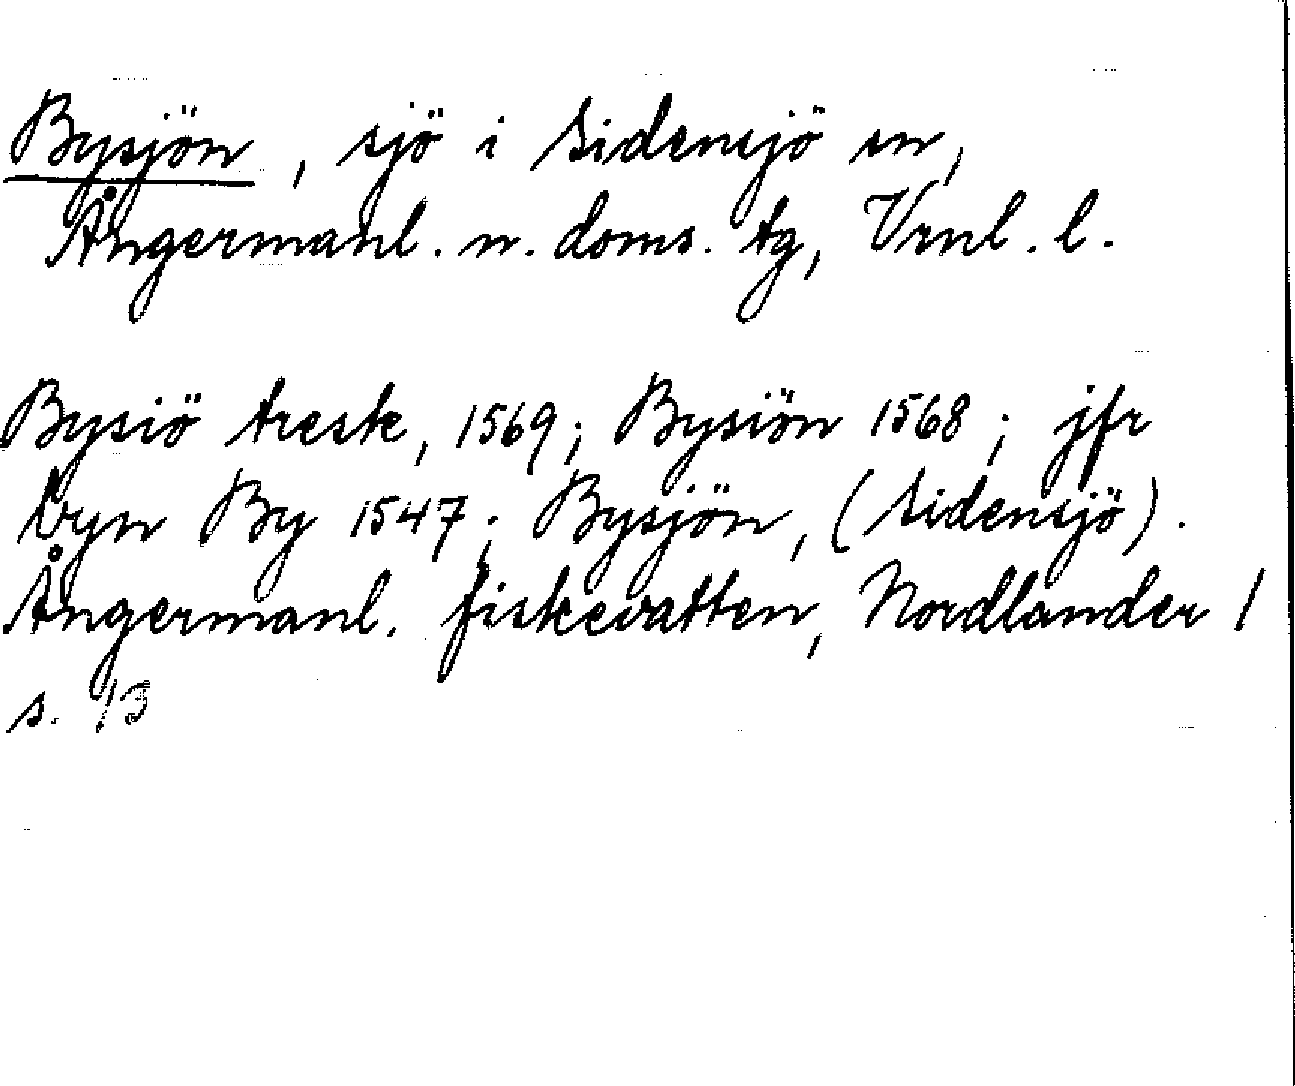 Bysjön, sjö i Sidensjö sn,
Ångermanl. n. doms. tg, Vrnl. l.
Bysiö tresk, 1569; Bysiön 1568; jfr
byn By 1547; Bysjön, (Sidensjö).
Ångermanl. fiskevatten, Nordlander 1
s. 13